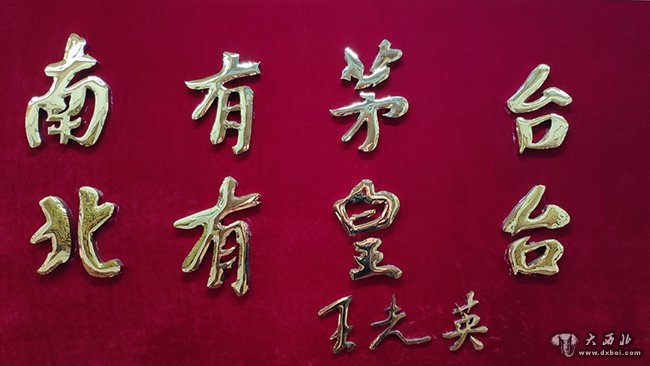 南有茅台
北有皇台
王光英
大西北
www.dxbei.com